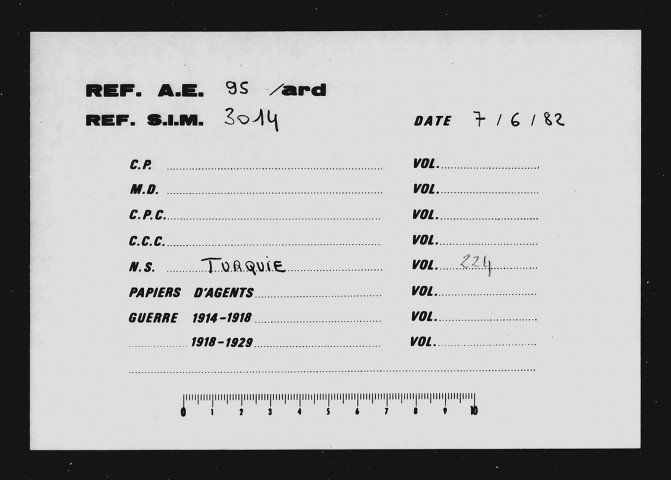 REF. A.E. 95 /ard
REF. S.I.M. 3014 DATE 7 / 6 / 82
C.P. VOL.
M.D. VOL.
C.P.C. VOL.
C.C.C. VOL.
N.S. TURQUIE VOL. 224
PAPIERS D'AGENTS VOL.
GUERRE 1914-1918 VOL.
1918-1929 VOL.
0 1 2 3 4 5 6 7 8 9 10